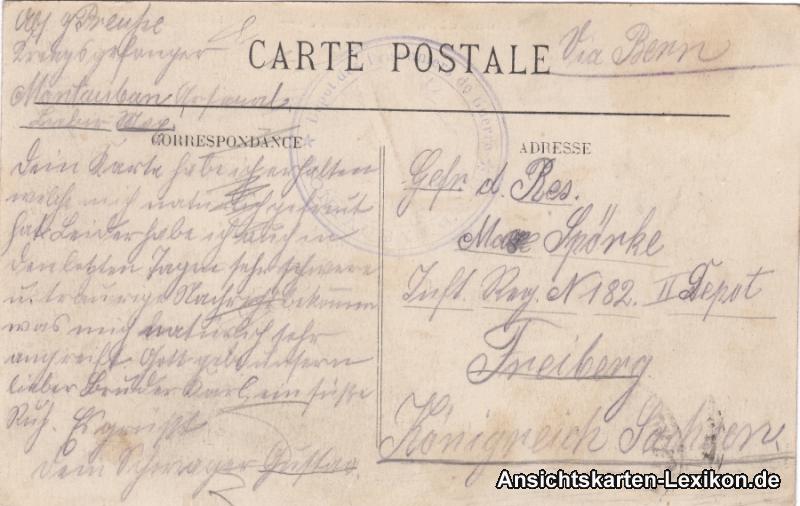 Kriegsgefangener
CARTE POSTALE
Via Bern
Montauban Arsenal
Lieber Max.
CORRESPONDANCE
ADRESSE
Dein Karte habe ich erhalten
welche mich natürlich gefreut
hat. Leider habe ich auch in
den letzten Tagen sehr schwere
u. traurige Nachricht bekommen
was mich natürlich sehr
Gott gebe unsern
lieber Bruder Karl, ein süße
Ruh. Es grüßt
Dein Schwager Gustav
Gefr. d. Res.
Max Spörke
Inft. Reg. N 182. II Depot
Freiberg
Königreich Sachsen
Ansichtskarten-Lexikon.de